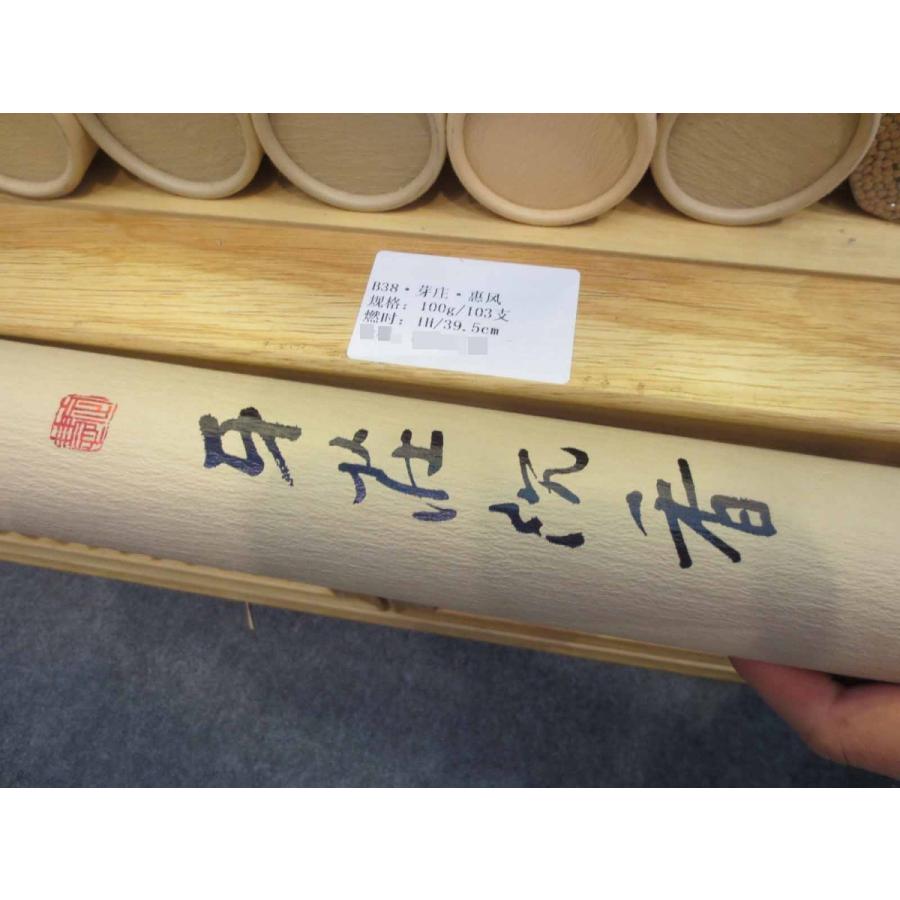 B38·芽庄·惠风
规格：100g/103支
燃时：1H/39.5cm
芽庄沉香